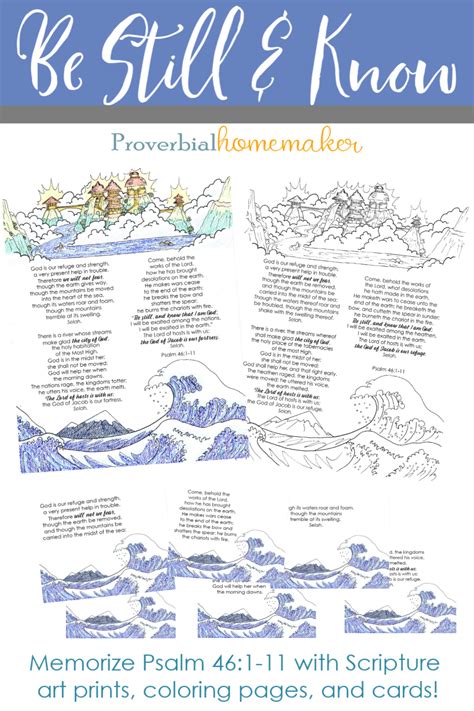 Be Still & Know
Proverbialhomemaker
God is our refuge and strength,
a very present help in trouble.
Therefore we will not fear,
though the earth gives way,
into the heart of the sea,
though its waters roar and foam,
though the mountains
tremble at its swelling.
Selah.
There is a river whose streams
make glad the city of God,
the holy habitation
of the Most High.
God is in the midst of her;
she shall not be moved;
God will help her
when morning dawns.
The nations rage, the kingdoms totter;
he utters his voice, the earth melts.
The Lord of hosts is with us;
the God of Jacob is our fortress.
Selah.
Come, behold the
works of the Lord,
how he has brought
desolations on the earth.
He makes wars cease
to the end of the earth;
he breaks the bow and
shatters the spear;
he burns the chariots with fire.
Be still, and know that I am God.
I will be exalted among the nations,
I will be exalted in the earth!
Psalm 46:1-11
God is our refuge and strength,
a very present help in trouble.
Therefore will not we fear,
though the earth be removed,
and though the mountains be
carried into the midst of the sea;
Though the waters thereof roar and
be troubled, though the mountains
shake with the swelling thereof.
Selah.
There is a river, the streams whereof
shall make glad the city of God,
the holy place of the tabernacles
of the most High.
God is in the midst of her;
she shall not be moved:
God shall help her, and that right early.
The heathen raged,
the kingdoms were moved:
he uttered his voice, the earth melted.
The Lord of hosts is with us;
the God of Jacob is our refuge.
Selah.
Come, behold the
works of the Lord,
what desolations he hath
made in the earth.
He maketh wars to cease
unto the end of the earth;
he breaketh the bow, and
cutteth the spear in sunder;
he burneth the chariot in the fire.
Be still, and know that I am God:
Psalm 46:1-11
God is our refuge and strength,
a very present help in trouble.
Therefore we will not fear,
Come, behold the
works of the Lord,
how he has brought
desolations on the earth.
He makes wars cease
to the end of the earth;
he breaks the bow and
shatters the spear;
he burns
the chariots with fire.
gh its waters roar and foam,
though the mountains
tremble at its swelling.
Selah.
God will help her when
the morning dawns.
, the kingdoms
his voice,
Selah.
Memorize Psalm 46:1-11 with Scripture
art prints, coloring pages, and cards!